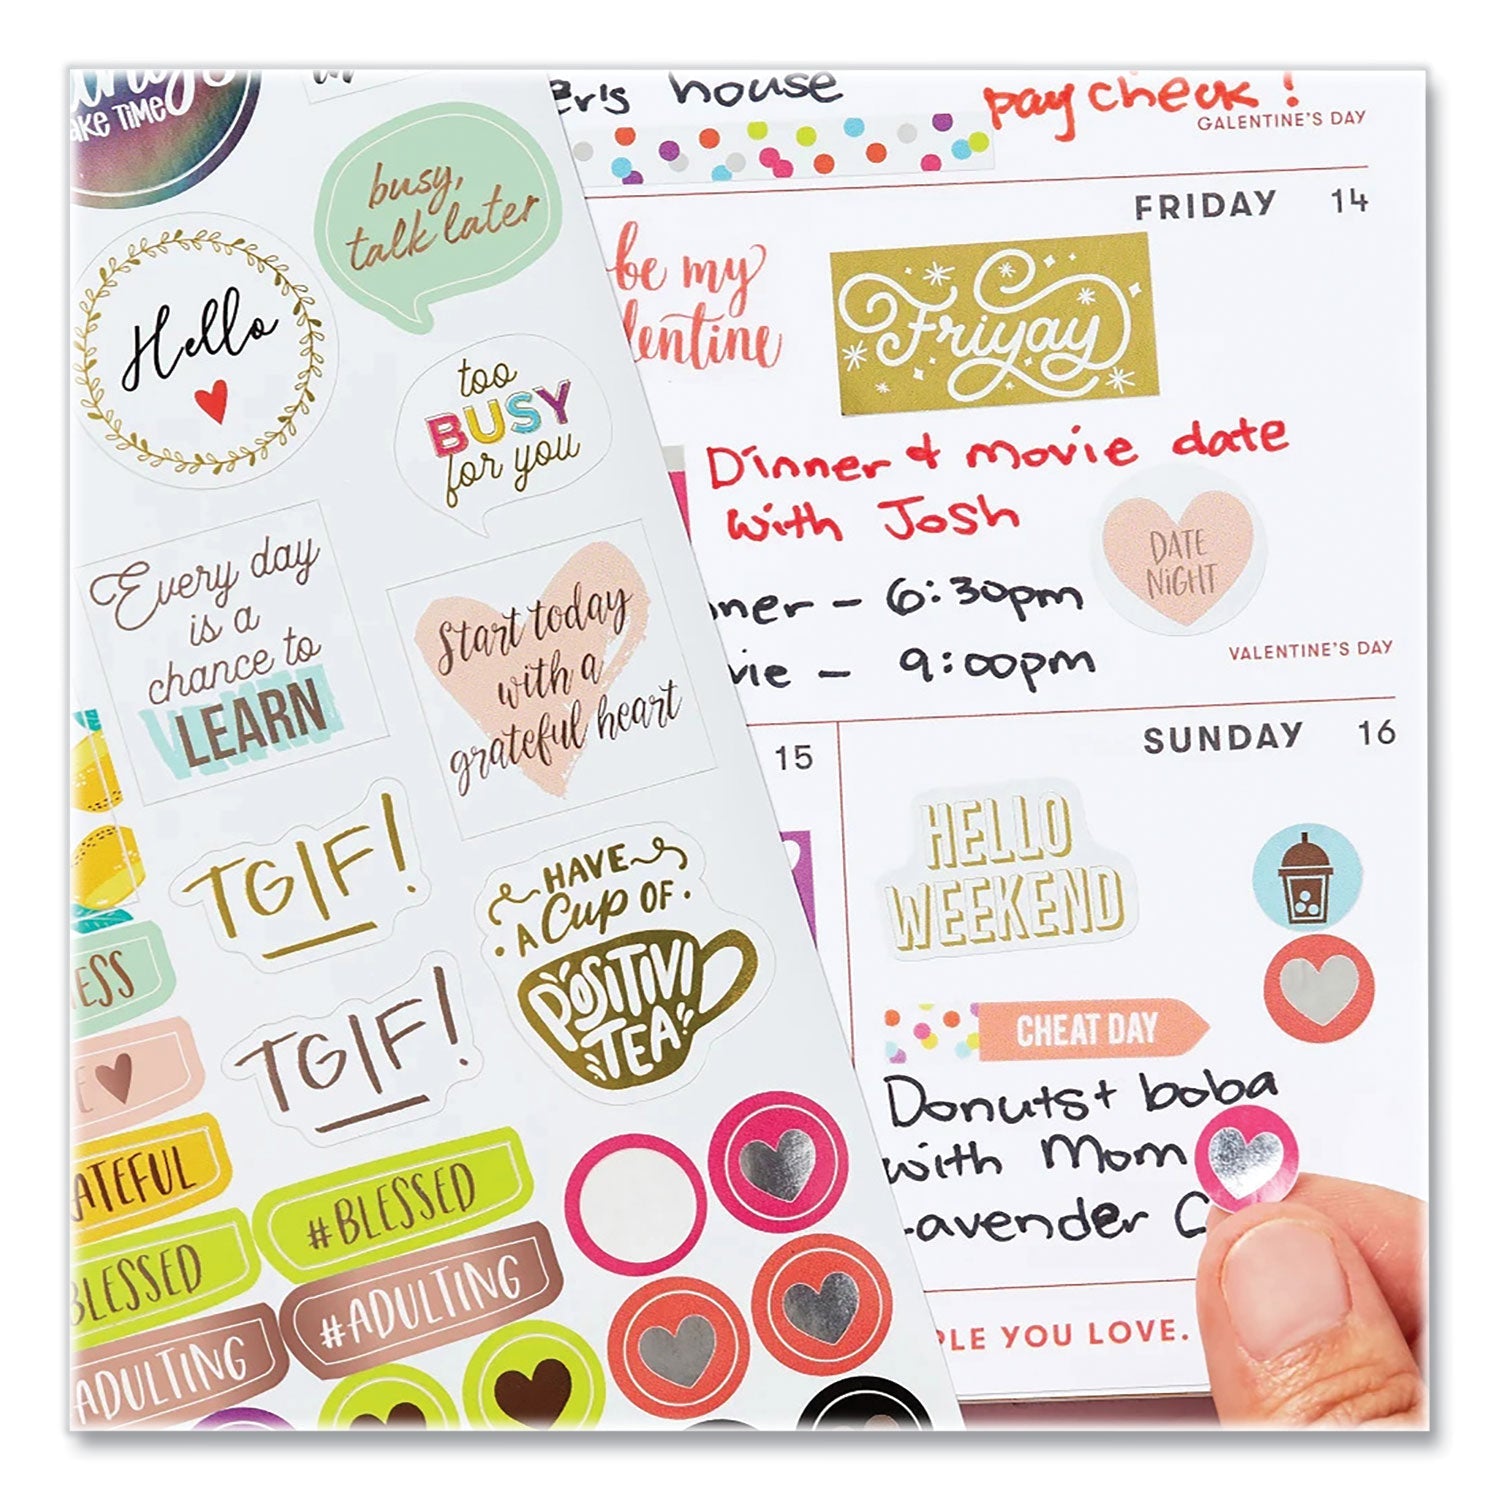 AKE TIME
busy,
talk later
Hello
too
BUSY
for you
Every day
is a
chance to
LEARN
Start today
with a
grateful heart
TGIF!
HAVE
A CUP OF
POSITIVI
TEA
TGIF!
ESS
E
ATEFUL
#BLESSED
BLESSED
#ADULTING
ADULTING
er's house
pay check!
GALENTINE'S DAY
FRIDAY 14
be my
lentine
Friyay
Dinner + movie date
with Josh
DATE
NIGHT
nner - 6:30pm
vie - 9:00pm
VALENTINE'S DAY
15
SUNDAY 16
HELLO
WEEKEND
CHEAT DAY
Donuts + boba
with Mom
Lavender C
PLE YOU LOVE.